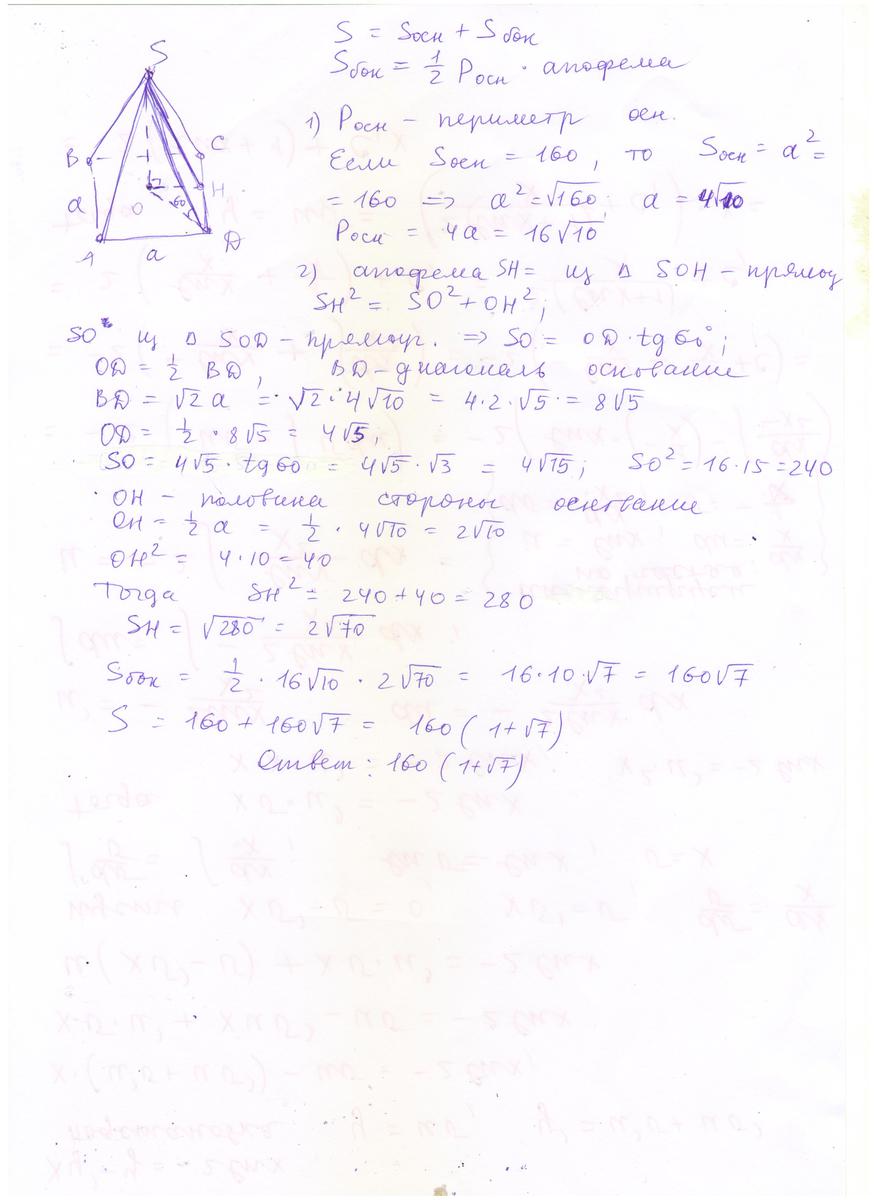 S = Sосн + Sбок
Sбок = 1/2 Pосн · апофема
1) Pосн – периметр осн.
Если Sосн = 160, то Sосн = a² =
= 160 => a² = √160; a = 4√10
Pосн = 4a = 16√10
2) апофема SH = из Δ SOH – прямоуг
SH² = SO² + OH²;
SO из Δ SOD – прямоуг. => SO = OD · tg 60°;
OD = 1/2 BD, BD – диагональ основание
BD = √2 a = √2 · 4√10 = 4·2·√5 = 8√5
OD = 1/2 · 8√5 = 4√5;
SO = 4√5 · tg 60 = 4√5 · √3 = 4√15; SO² = 16·15 = 240
OH – половина стороны основание
OH = 1/2 a = 1/2 · 4√10 = 2√10
OH² = 4·10 = 40
Тогда SH² = 240 + 40 = 280
SH = √280 = 2√70
Sбок = 1/2 · 16√10 · 2√70 = 16·10·√7 = 160√7
S = 160 + 160√7 = 160 (1+√7)
Ответ: 160 (1+√7)
S
B
C
a
H
O
60
A
a
D